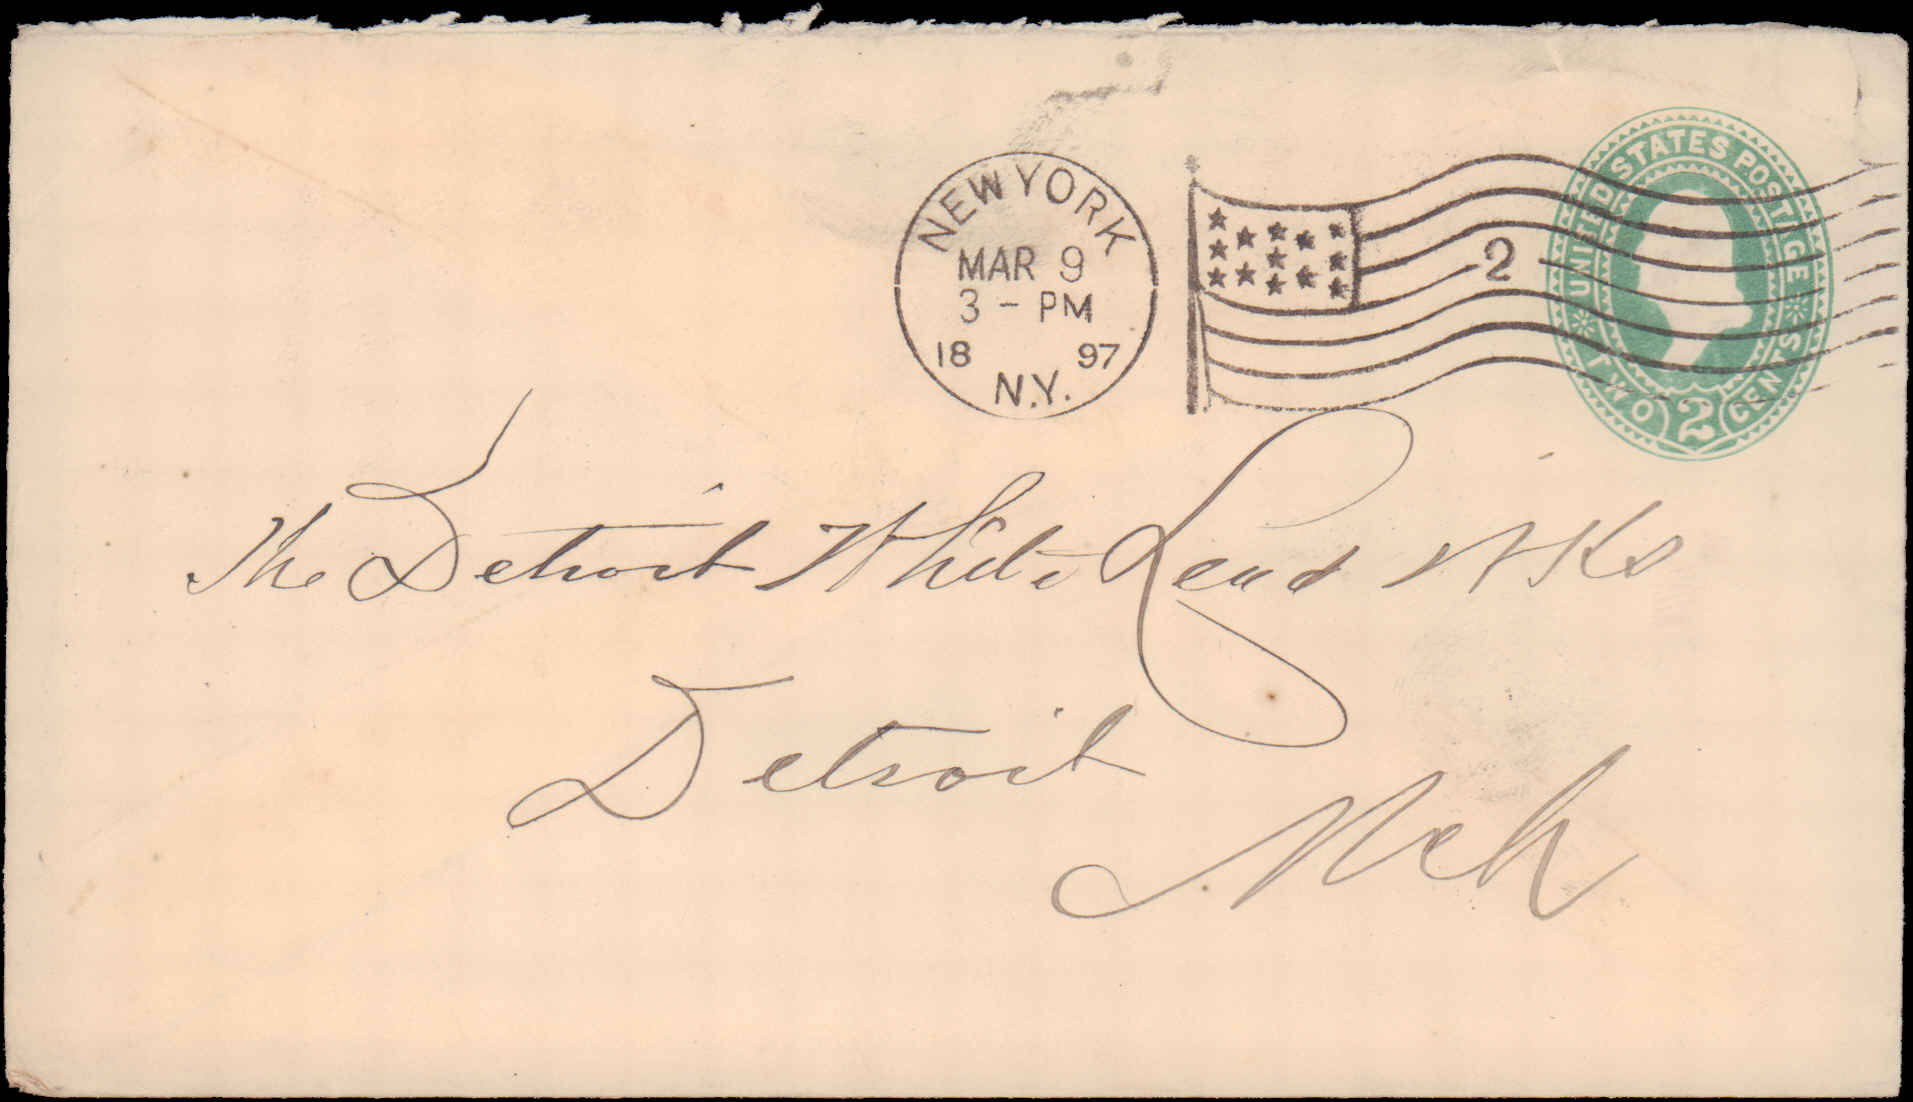 NEW YORK
MAR 9
3 - PM
18 97
N.Y.
2
UNITED STATES POSTAGE
TWO 2 CENTS
The Detroit White Lead Wks
Detroit
Mch